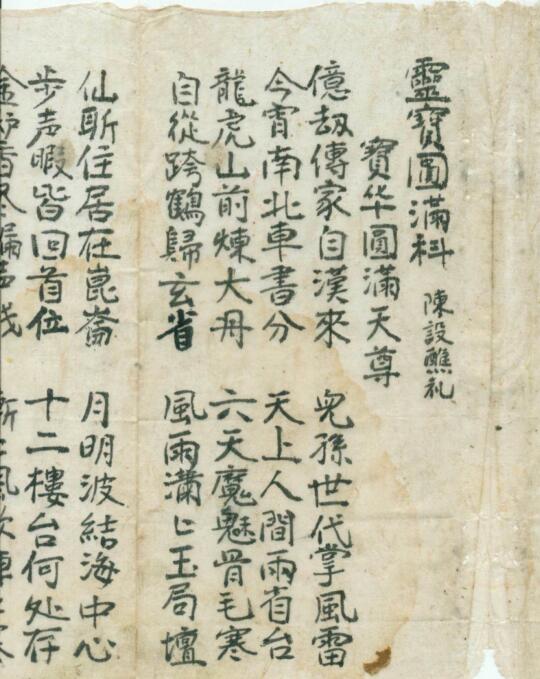 靈寶圓滿科 陳設醮礼
寶华圓滿天尊
億劫傳家自漢來 兒孫世代掌風雷
今霄南北車書分 天上人間兩省台
龍虎山前煉大丹 六天魔魅骨毛寒
自從跨鶴歸玄省 風雨瀟〻玉局壇
仙斬住居在崑崙 月明波結海中心
步声暇皆回首位 十二樓台何处存